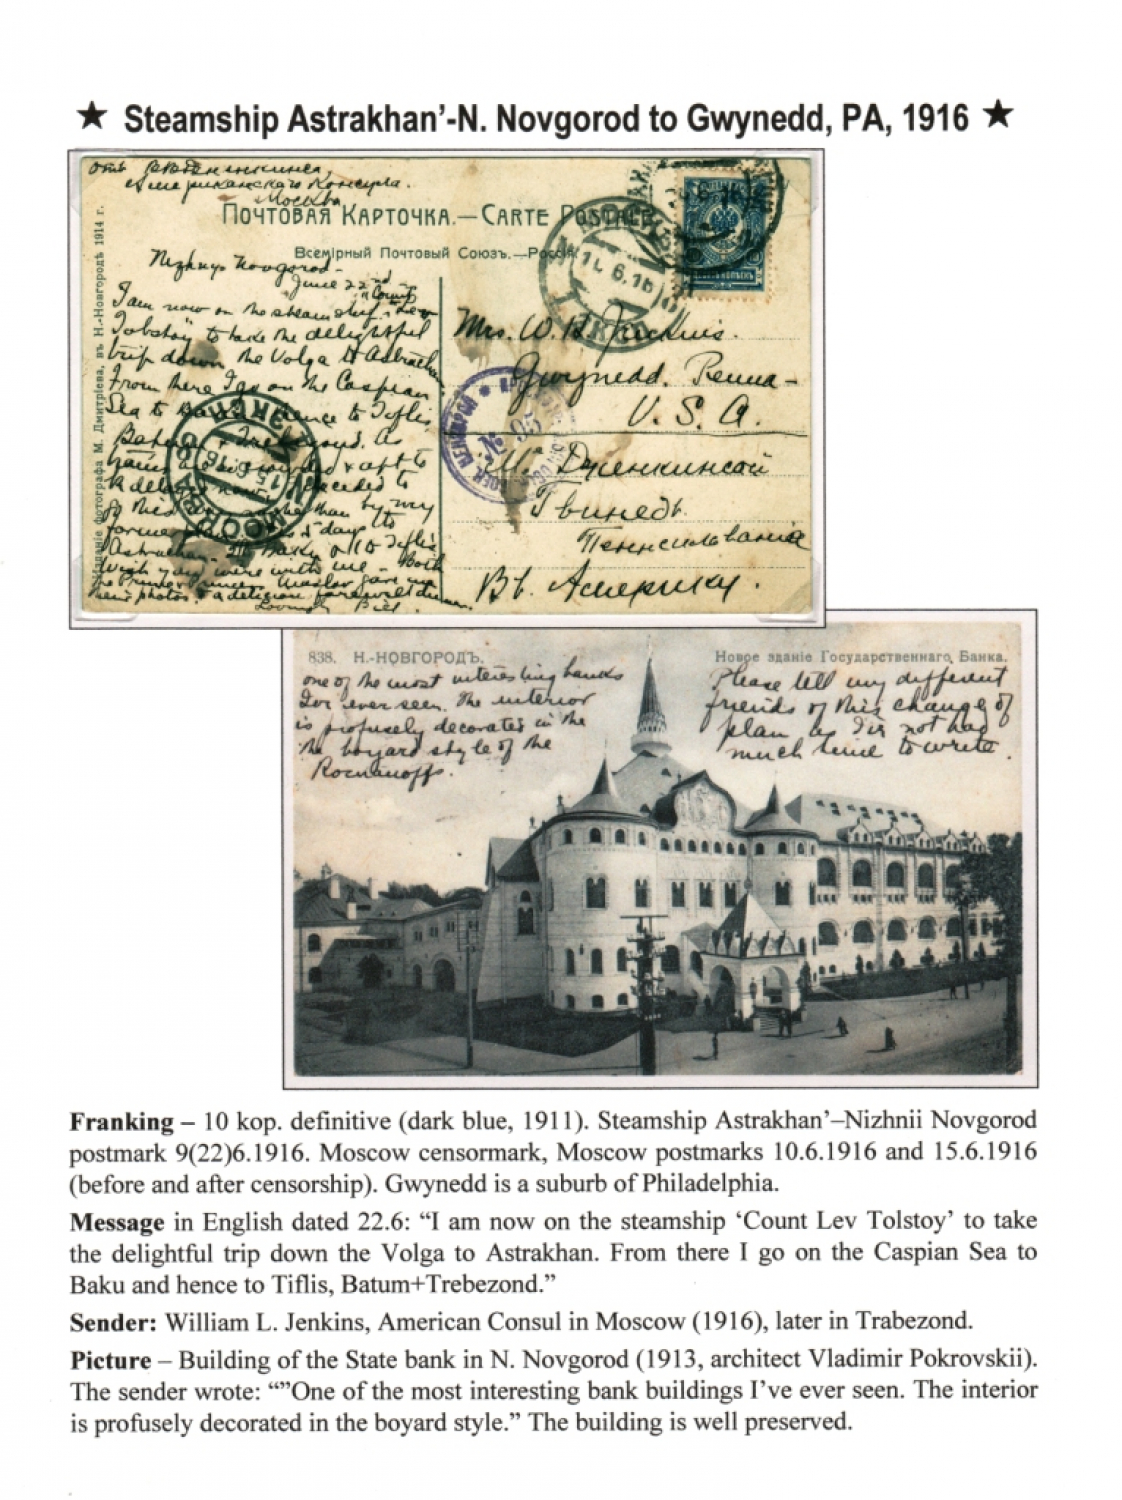 ★ Steamship Astrakhan’-N. Novgorod to Gwynedd, PA, 1916 ★
отъ
Американскаго Консула.
Москва
ПОЧТОВАЯ КАРТОЧКА.—CARTE POSTALE
Всемірный Почтовый Союзъ.—Россія
Изданіе фотографа М. Дмитріева, въ Н.-Новгородѣ 1914 г.
Nizhnys Novgorod-
June 22nd
I am now on the steamship "Count Lev
Tolstoy" to take the delightful
trip down the Volga to Astrakhan.
From there I go on the Caspian
Sea to Baku hence to Tiflis
Batum + Trebezond. As
trains are so crowded + apt to
be delayed now, I decided to
do this rather than by my
former plan 5 days to
Astrakhan - Baku + to Tiflis
Wish you were with me - Both
the Prince + Princess gave me
their photos + a delicious farewell dinner.
Lovingly Bill
Mrs. W. H. Jenkins.
Gwynedd. Penna-
U. S. A.
Дженкинсай
Гвинедъ
Пеннсильванія
Въ Америку.
МОСКВА
10.6.16
№ 05
МОСКВА
15 6 16
838. Н.-НОВГОРОДЪ.
Новое зданіе Государственнаго Банка.
one of the most interesting banks
I've ever seen. The interior
is profusely decorated in the
the boyard style of the
Romanoffs.
Please tell my different
friends of this change of
plan as I've not had
much time to write.
Franking – 10 kop. definitive (dark blue, 1911). Steamship Astrakhan’–Nizhnii Novgorod
postmark 9(22)6.1916. Moscow censormark, Moscow postmarks 10.6.1916 and 15.6.1916
(before and after censorship). Gwynedd is a suburb of Philadelphia.
Message in English dated 22.6: “I am now on the steamship ‘Count Lev Tolstoy’ to take
the delightful trip down the Volga to Astrakhan. From there I go on the Caspian Sea to
Baku and hence to Tiflis, Batum+Trebezond.”
Sender: William L. Jenkins, American Consul in Moscow (1916), later in Trabezond.
Picture – Building of the State bank in N. Novgorod (1913, architect Vladimir Pokrovskii).
The sender wrote: “”One of the most interesting bank buildings I’ve ever seen. The interior
is profusely decorated in the boyard style.” The building is well preserved.